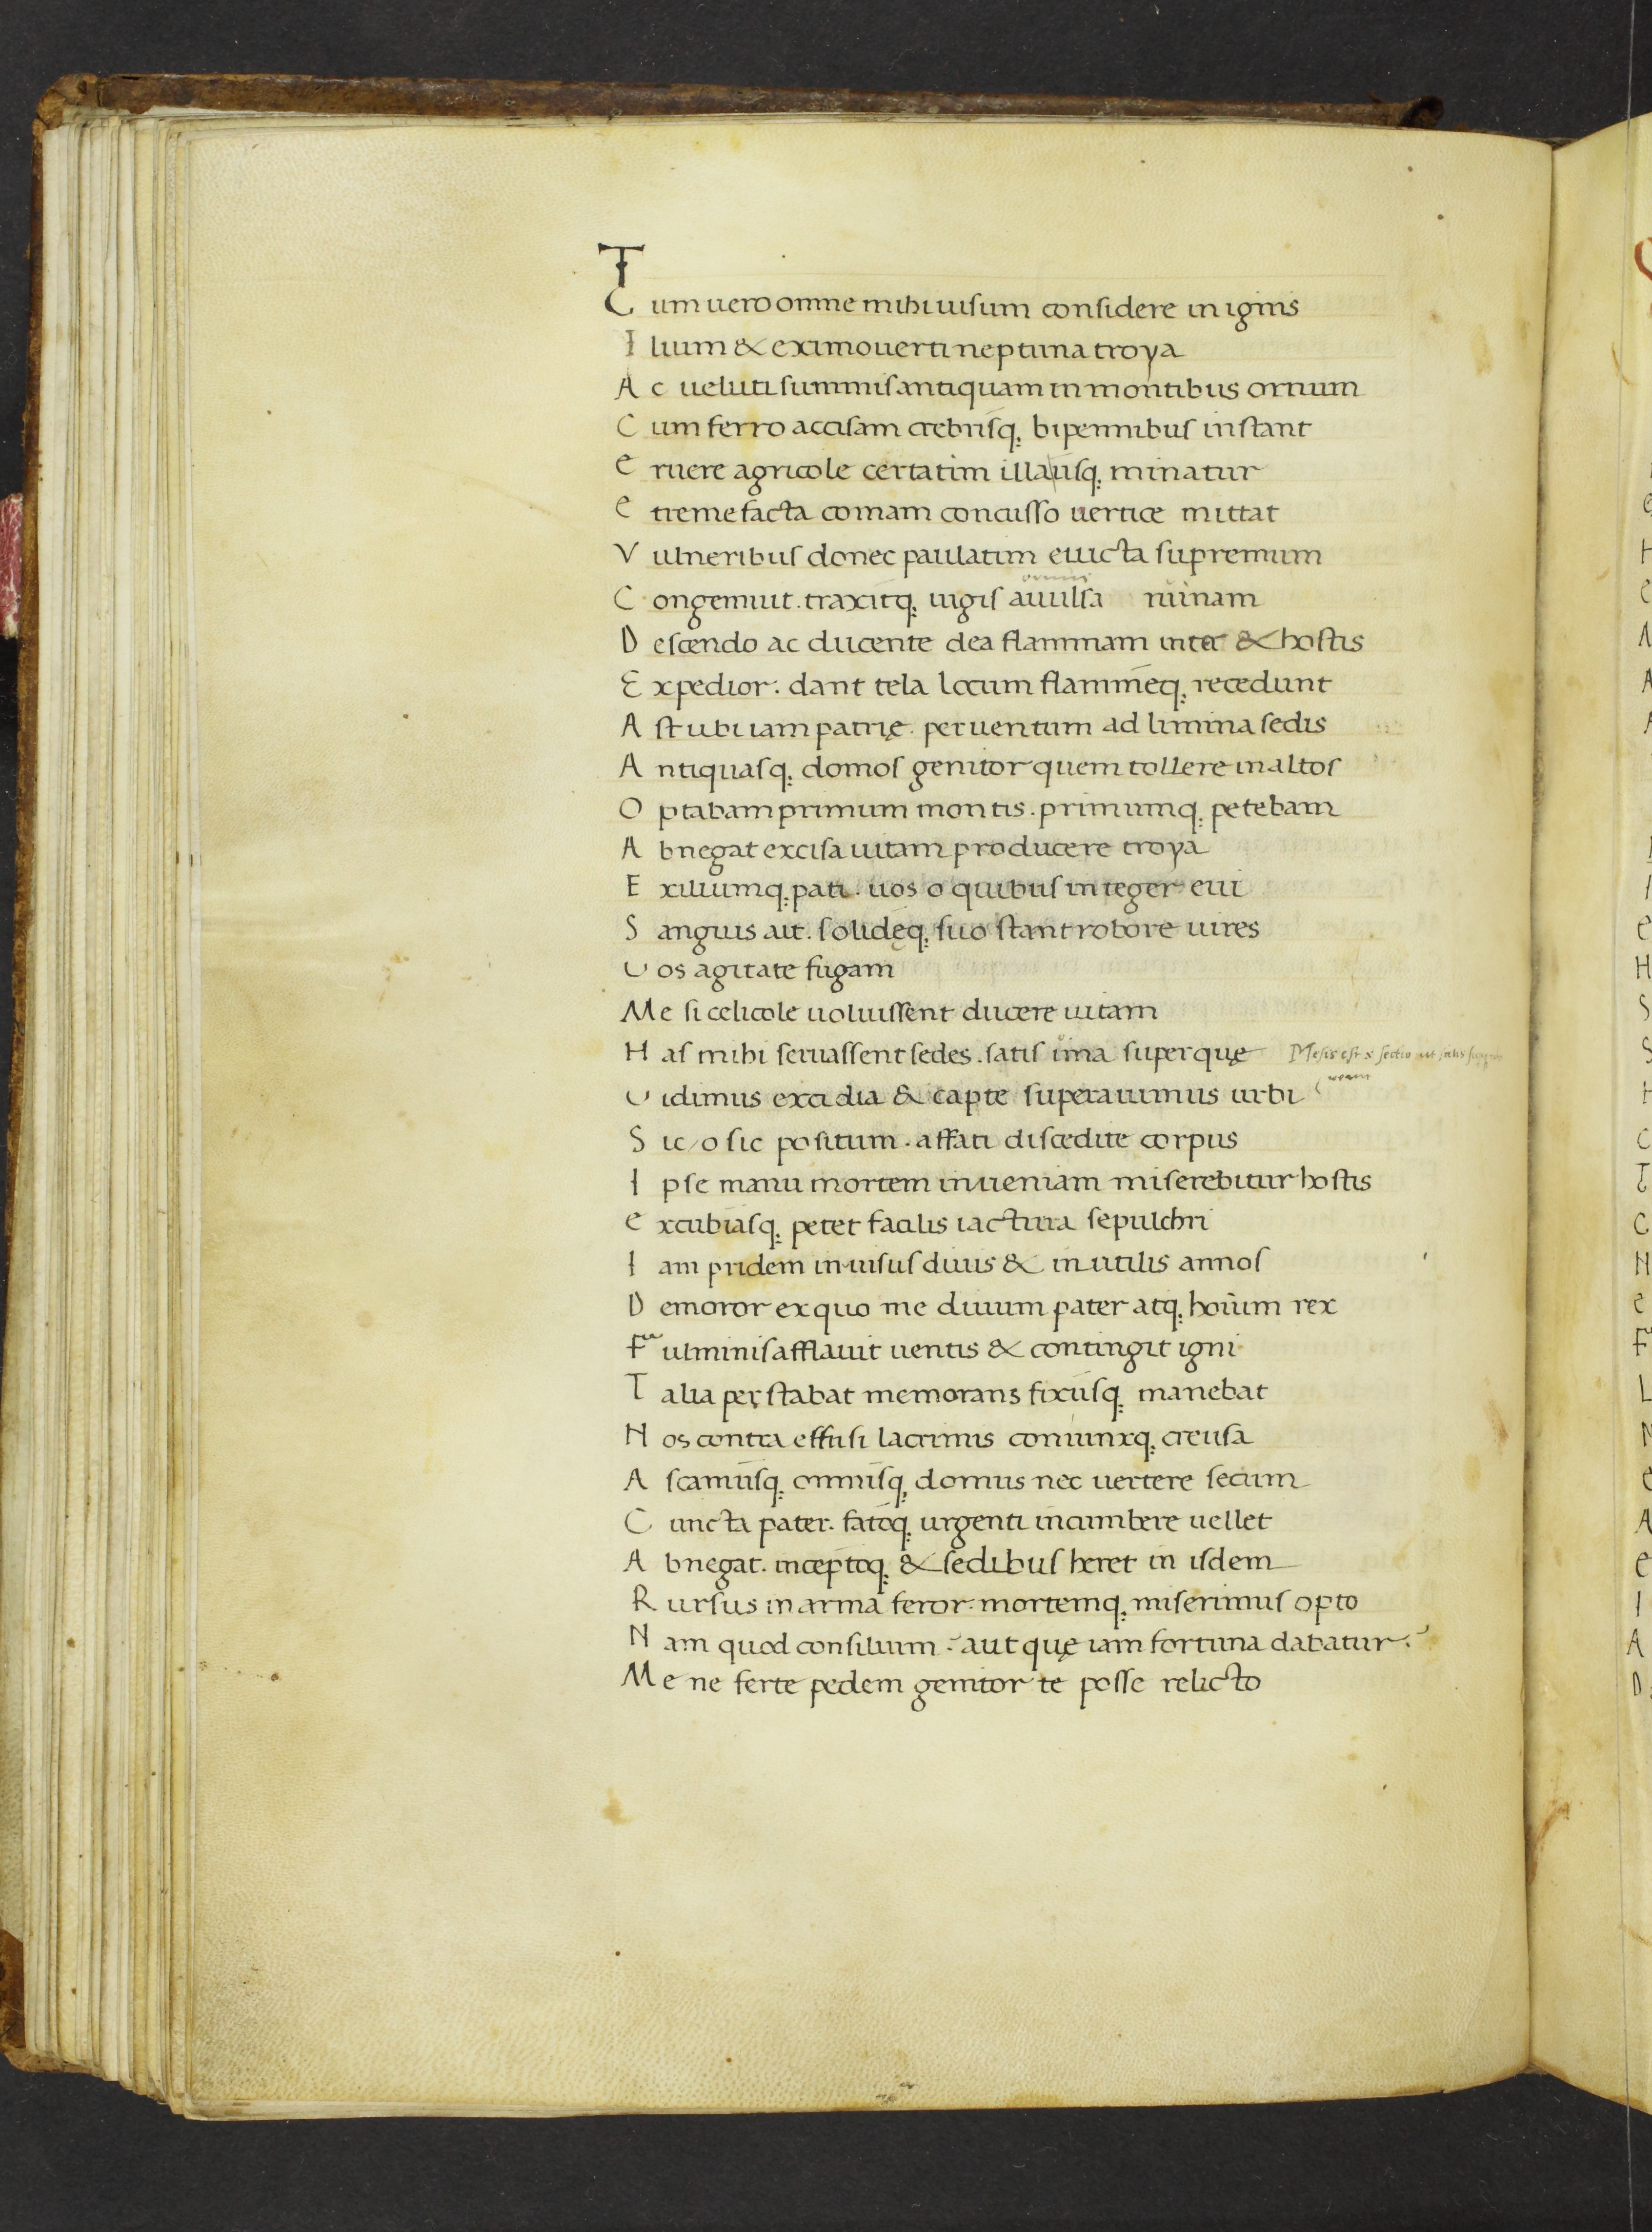 Tum uero omne mihi uisum considere in ignis
Ilium & ex imo uerti neptuna troya
Ac ueluti summis antiquam in montibus ornum
Cum ferro accisam crebrisq; bipennibus instant
eruere agricole certatim illa usq; minatur
e tremefacta comam concusso uertice mittat
Vulneribus donec paulatim euicta supremum
Congemuit. traxitq; iugis auulsa ruinam
Descendo ac ducente dea flammam inter & hostis
Expedior. dant tela locum flammeq; recedunt
Ast ubi iam patrię. peruentum ad limina sedis
Antiquasq; domos genitor quem tollere in altos
Optabam primum montis. primumq; petebam
Abnegat excisa uitam producere troya
Exiliumq; pati. uos o quibus integer eui
Sanguis ait. solideq; suo stant robore uires
Uos agitate fugam
Me si celicole uoluissent ducere uitam
Has mihi seruassent sedes. satis una superquę
Uidimus excidia & capte superauimus urbi
Sic / o sic positum. affati discedite corpus
Ipse manu mortem inueniam miserebitur hostis
excubiasq; petet facilis iactura sepulchri
Iam pridem inuisus diuis & inutilis annos
Demoror ex quo me diuum pater atq; hoium rex
Fulminis afflauit uentis & contingit igni
Talia perstabat memorans fixusq; manebat
Nos contra effusi lacrimis coniunxq; creusa
Ascaniusq; omnisq; domus nec uertere secum
Cuncta pater. fatoq; urgenti incumbere uellet
Abnegat. inceptoq; & sedibus heret in isdem
Rursus in arma feror. mortemq; miserimus opto
Nam quod consilium. aut quę iam fortuna dabatur.
Me ne ferte pedem genitor te posse relicto